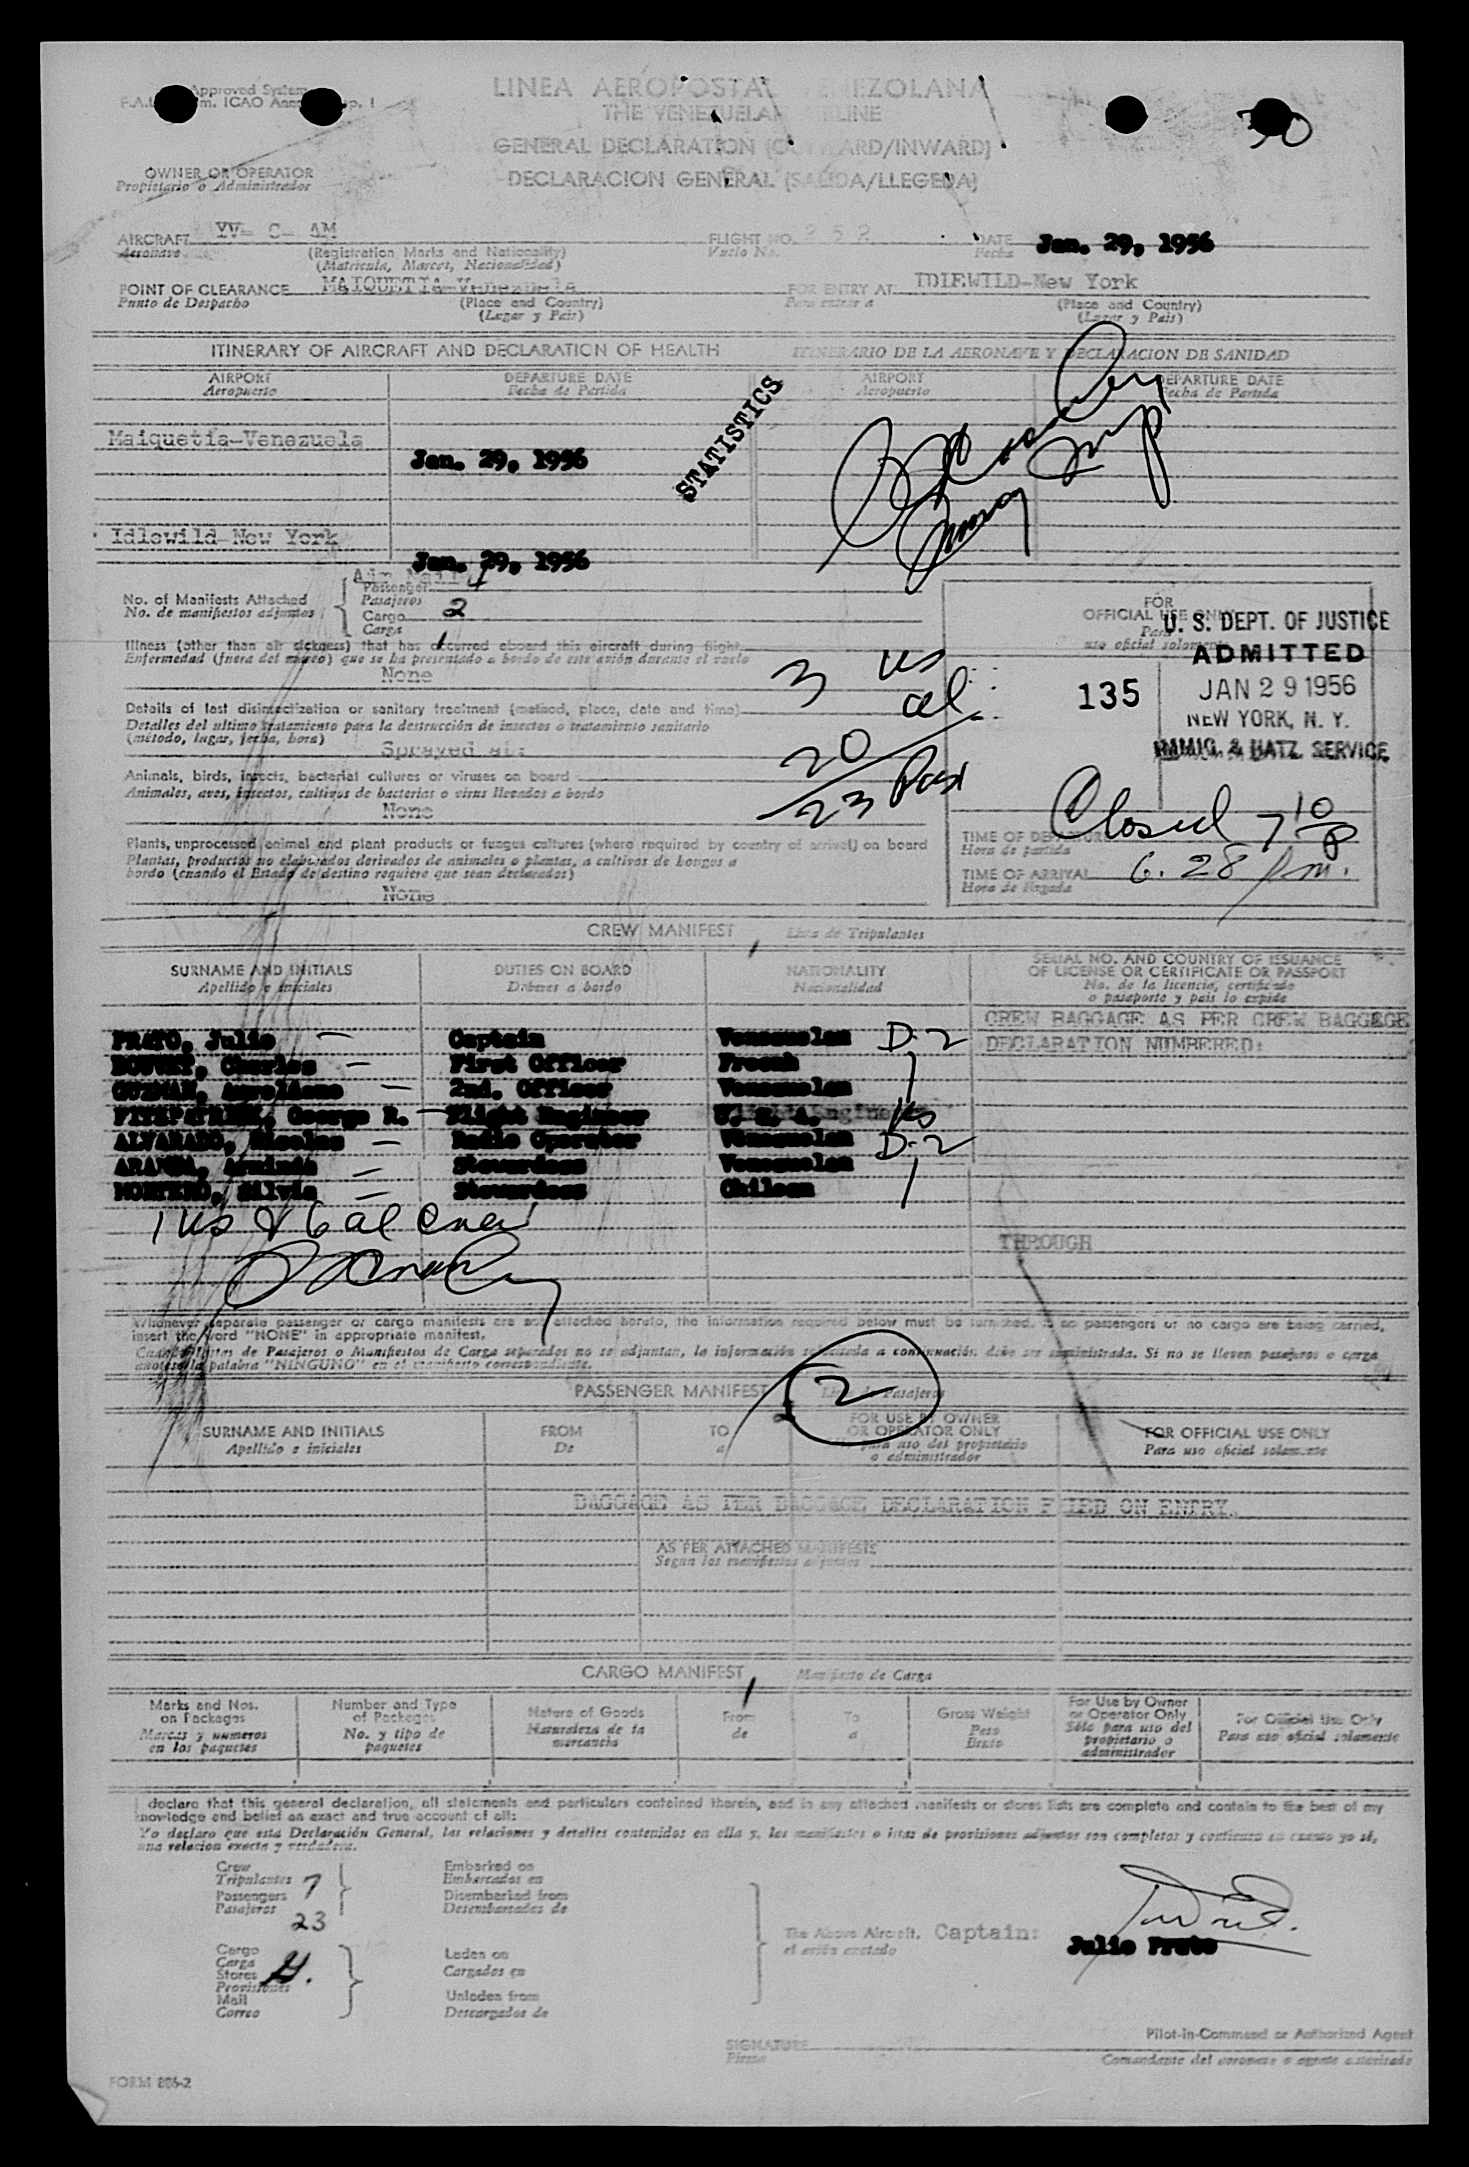 Approved System
LINEA AEROPOSTAL VENEZOLANA
THE VENEZUELAN AIRLINE
GENERAL DECLARATION (OUTWARD/INWARD)
DECLARACION GENERAL (SALIDA/LLEGEDA)
30
OWNER OR OPERATOR
Propietario o Administrador
AIRCRAFT YV- C- AM FLIGHT NO. 252 DATE Jan. 29, 1956
Aeronave (Registration Marks and Nationality) Vuelo No. Fecha
(Matricula, Marcas, Nacionalidad)
POINT OF CLEARANCE MAIQUETIA-Venezuela FOR ENTRY AT IDLEWILD-New York
Punto de Despacho (Place and Country) Para entrar a (Place and Country)
(Lugar y Pais) (Lugar y Pais)
ITINERARY OF AIRCRAFT AND DECLARATION OF HEALTH ITINERARIO DE LA AERONAVE Y DECLARACION DE SANIDAD
AIRPORT DEPARTURE DATE AIRPORT DEPARTURE DATE
Aeropuerto Fecha de Partida Aeropuerto Fecha de Partida
STATISTICS
Maiquetia-Venezuela Jan. 29, 1956
Idlewild-New York Jan. 29, 1956
Air Mail 1
No. of Manifests Attached Passenger
No. de manifiestos adjuntos Pasajeros
Cargo 2
Carga
FOR
OFFICIAL USE ONLY
Para
uso oficial solamente
U. S. DEPT. OF JUSTICE
ADMITTED
135 JAN 29 1956
NEW YORK, N. Y.
IMMIG. & NATZ. SERVICE
Illness (other than air sickness) that has occurred aboard this aircraft during flight
Enfermedad (fuera del mareo) que se ha presentado a bordo de este avión durante el vuelo
None
3 us
20 al
23 Pass
Details of last disinsectization or sanitary treatment (method, place, date and time)
Detalles del ultimo tratamiento para la destrucción de insectos o tratamiento sanitario
(método, lugar, fecha, hora)
Sprayed at:
Animals, birds, insects, bacterial cultures or viruses on board
Animales, aves, insectos, cultivos de bacterias o virus llevados a bordo
None
Plants, unprocessed animal and plant products or fungus cultures (where required by country of arrival) on board
Plantas, productos no elaborados derivados de animales o plantas, o cultivos de hongos a
bordo (cuando el Estado de destino requiere que sean declarados)
None
Closed 7 10 P
TIME OF DEPARTURE
Hora de partida
TIME OF ARRIVAL 6.28 pm.
Hora de llegada
CREW MANIFEST Lista de Tripulantes
SURNAME AND INITIALS DUTIES ON BOARD NATIONALITY SERIAL NO. AND COUNTRY OF ISSUANCE
OF LICENSE OR CERTIFICATE OR PASSPORT
Apellido e iniciales Deberes a bordo Nacionalidad No. de la licencia, certificado
o pasaporte y pais lo expide
CREW BAGGAGE AS PER CREW BAGGAGE
DECLARATION NUMBERED:
PRATO, Julio Captain Venezuelan D-2
Charles First Officer French
GUZMAN, 2nd. Officer Venezuelan
FITZPATRICK, George R. Flight Engineer U. S. A. us
ALVARADO, Nicolas Radio Operator Venezuelan D-2
Stewardess Venezuelan
MONTERO, Silvia Stewardess Chilean
1 us & 6 al Crew
THROUGH
Whenever separate passenger or cargo manifests are not attached hereto, the information required below must be furnished. If no passengers or no cargo are being carried,
insert the word "NONE" in appropriate manifest.
Cuando listas de Pasajeros o Manifiestos de Carga separados no se adjuntan, la información solicitada a continuación debe ser suministrada. Si no se lleven pasajeros o carga
anótese la palabra "NINGUNO" en el manifiesto correspondiente.
PASSENGER MANIFEST Lista de Pasajeros
2
SURNAME AND INITIALS FROM TO FOR USE BY OWNER
OR OPERATOR ONLY FOR OFFICIAL USE ONLY
Apellido e iniciales De a Para uso del propietario
o administrador Para uso oficial solamente
BAGGAGE AS PER BAGGAGE DECLARATION FILED ON ENTRY.
AS PER ATTACHED MANIFESTS
Segun los manifiestos adjuntos
CARGO MANIFEST Manifiesto de Carga
Marks and Nos.
on Packages
Marcas y numeros
en los paquetes
Number and Type
of Packages
No. y tipo de
paquetes
Nature of Goods
Naturaleza de la
mercancia
From
de
To
a
Gross Weight
Peso
Bruto
For Use by Owner
or Operator Only
Sólo para uso del
propietario o
administrador
For Official Use Only
Para uso oficial solamente
I declare that this general declaration, all statements and particulars contained therein, and in any attached manifests or stores lists are complete and contain to the best of my
knowledge and belief an exact and true account of all:
Yo declaro que esta Declaración General, las relaciones y detalles contenidos en ella y, los manifiestos o listas de provisiones adjuntos son completos y contienen en cuanto yo sé,
una relación exacta y verdadera.
Crew
Tripulantes 7
Passengers
Pasajeros 23
Embarked on
Embarcados en
Disembarked from
Desembarcados de
Cargo
Carga
Stores
Provisiones
Mail
Correo
Laden on
Cargados en
Unladen from
Descargados de
The Above Aircraft. Captain:
el avión anotado
Julio Prato
SIGNATURE
Firma
Pilot-in-Command or Authorized Agent
Comandante del aeronave o agente autorizado
FORM 806-2